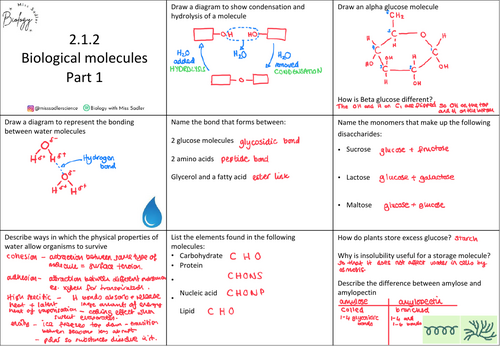 Miss Sadler
Biology
2.1.2
Biological molecules
Part 1
@missadlerscience
Biology with Miss Sadler
Draw a diagram to show condensation and
hydrolysis of a molecule
OH
HO
H2O
added
HYDROLYSIS
H2O
H2O
removed
CONDENSATION
O
Draw an alpha glucose molecule
CH3
C
O
H
H
H
C
C
HO
OH
H
OH
C
C
H
OH
How is Beta glucose different?
The OH and H on C1 are flipped so OH on the top
and H on the bottom
Draw a diagram to represent the bonding
between water molecules
O δ-
H δ+
H δ+
Hydrogen
bond
O δ-
H δ+
H δ+
Name the bond that forms between:
2 glucose molecules glycosidic bond
2 amino acids peptide bond
Glycerol and a fatty acid ester link
Name the monomers that make up the following
disaccharides:
• Sucrose glucose + fructose
• Lactose glucose + galactose
• Maltose glucose + glucose
Describe ways in which the physical properties of
water allow organisms to survive
cohesion - attraction between same type of
molecule = surface tension.
adhesion - attraction between different
ex. xylem for transpiration.
High specific - H bonds absorb + release
heat + latent - large amounts of energy
heat of vaporation - cooling effect when
sweat evaporates.
List the elements found in the following
molecules:
• Carbohydrate C H O
• Protein
• CHONS
Nucleic acid CHONP
•
Lipid C H O
How do plants store excess glucose? starch
Why is insolubility useful for a storage molecule?
So that it does not affect water in cells by
osmosis.
Describe the difference between amylose and
amylopectin
amylose
amylopectin
coiled
branched
1-4 glycosidic
bonds
1-4 and
1-6 bonds